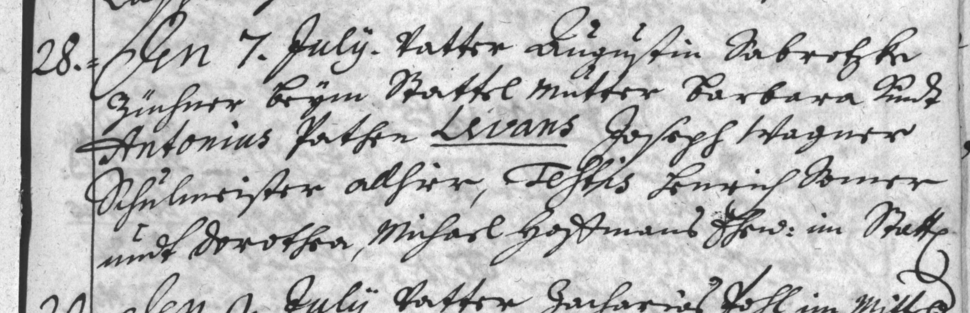 28. Den 7. July. Vatter Augustin Sabretzke
Züchner beym Stattel Mutter Barbara Kindt
Antonius Pathen Levans Joseph Wagner
Schulmeister allhier, Testis Henrich Somer
undt Dorothea, Michael Hoffmans Ehew: im Stattl
Den July Vatter Zacharias Pohl im Mittel